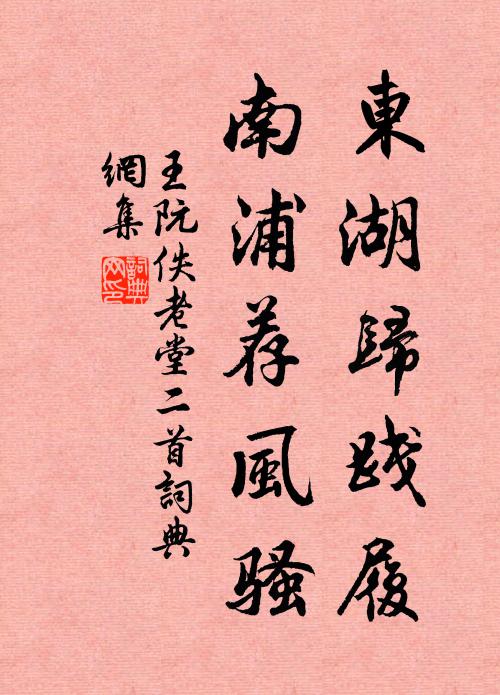 東湖歸踐履
南浦荐風騷
王阮佚老堂二首詞典
網集
詞典
网印